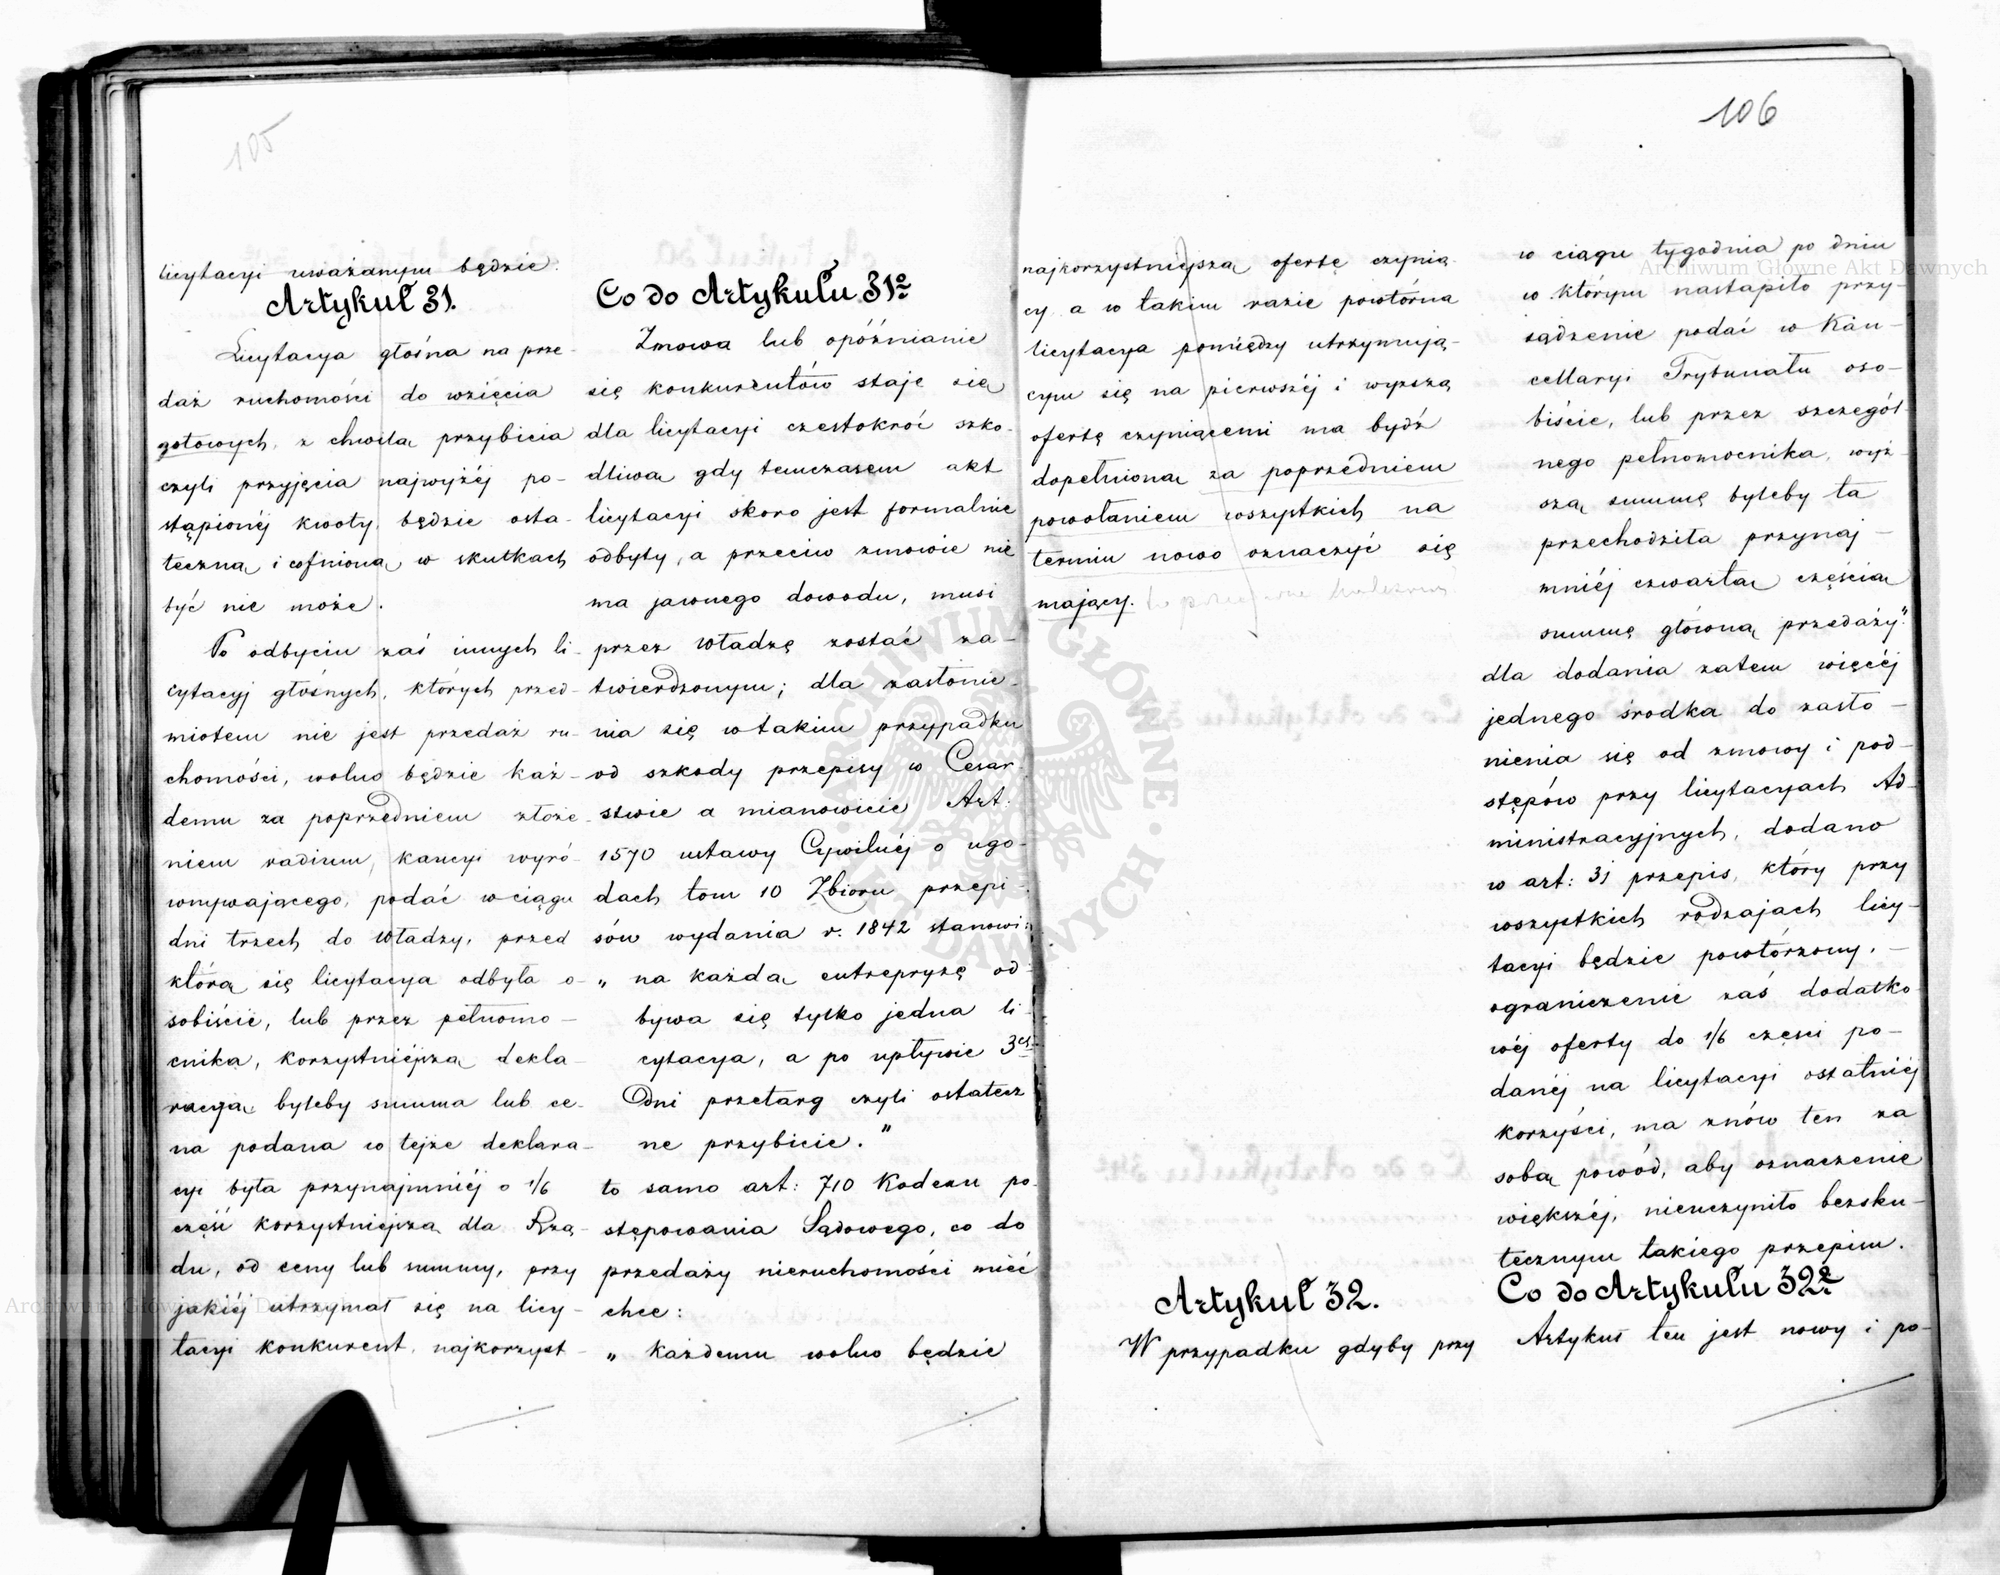 105
licytacyi uważanym będzie.
Artykuł 31.
Licytacya głośna na prze-
daż ruchomości do wzięcia
gotowych, z chwilą przybicia
czyli przyjęcia najwyżéj po-
stąpionéj kwoty, będzie osta-
teczną i cofnioną w skutkach
być nie może.
Po odbyciu zaś innych li-
cytacyj głośnych, których przed-
miotem nie jest przedaż ru-
chomości, wolno będzie każ-
demu za poprzedniem złoże-
niem vadium, kaucyi wyró-
wnywającego, podać w ciągu
dni trzech do Władzy, przed
którą się licytacya odbyła o-
sobiście, lub przez pełnomo-
cnika, korzystniejszą dekla-
racyą byleby summa lub ce-
na podana w tejże deklara-
cyi była przynajmniéj o 1/6
część korzystniejszą dla Rzą-
du, od ceny lub summy, przy
jakiéj utrzymał się na licy-
tacyi konkurent, najkorzyst-
Co do Artykułu 31º
Zmowa lub opóźnianie
się konkurentów staje się
dla licytacyi częstokroć szko-
dliwą gdy tymczasem akt
licytacyi skoro jest formalnie
odbyty, a przeciw zmowie nie
ma jawnego dowodu, musi
przez Władzę zostać za-
twierdzonym; dla zasłonie-
nia się w takim przypadku
od szkody przepisy w Cesar-
stwie a mianowicie Art:
1570 ustawy Cywilnéj o ugo-
dach tom 10 Zbioru przepi-
sów wydania r. 1842 stanowi:
„ na każdą entrepryzę od-
bywa się tylko jedna li-
cytacya, a po upływie 3ch
Dni przetarg czyli ostatecz
ne przybicie."
to samo art: 710 Kodexu po-
stępowania Sądowego, co do
przedaży nieruchomości mieć
chce:
„ każdemu wolno będzie
106
najkorzystniejszą ofertę czynią-
cy a w takim razie powtórna
licytacya pomiędzy utrzymują-
cym się na pierwszéj i wyższą
ofertę czyniącemi ma bydź
dopełnioną za poprzedniem
powołaniem wszystkich na
termin nowo oznaczyć się
mający.
Artykuł 32.
W przypadku gdyby przy
w ciągu tygodnia po dniu
w którym nastąpiło przy-
sądzenie podać w Kan-
cellaryi Trybunału oso-
biście, lub przez szczegól-
nego pełnomocnika, wyż-
szą summę byleby ta
przechodziła przynaj-
mniéj czwartą częścią
summę główną przedaży"
dla dodania zatem więcéj
jednego środka do zasło-
nienia się od zmowy i pod-
stępów przy licytacyach Ad-
ministracyjnych, dodano
w art: 31 przepis, który przy
wszystkich rodzajach licy-
tacyi będzie powtórzony. —
ograniczenie zaś dodatko-
wéj oferty do 1/6 części po-
danéj na licytacyi ostatniéj
korzyści, ma znów ten za
sobą powód, aby oznaczenie
większéj, nieuczyniło bezsku-
tecznym takiego przepisu.
Co do Artykułu 32º
Artykuł ten jest nowy i po-
ARCHIWUM GŁÓWNE AKT DAWNYCH
Archiwum Główne Akt Dawnych
Archiwum Główne Akt Dawnych